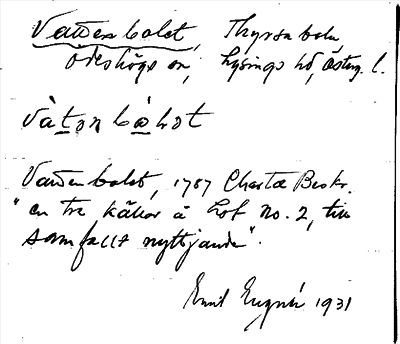 Vattenbolet, Thyrsabola,
Ödeshögs sn, Lysings hd, Österg. l.
vàtɒnbòlɒt
Vattenbolet, 1787 Charta Beskr.
"en tre kákor á Lof No. 2, till
samfällt nyttjande".
Emil 1931